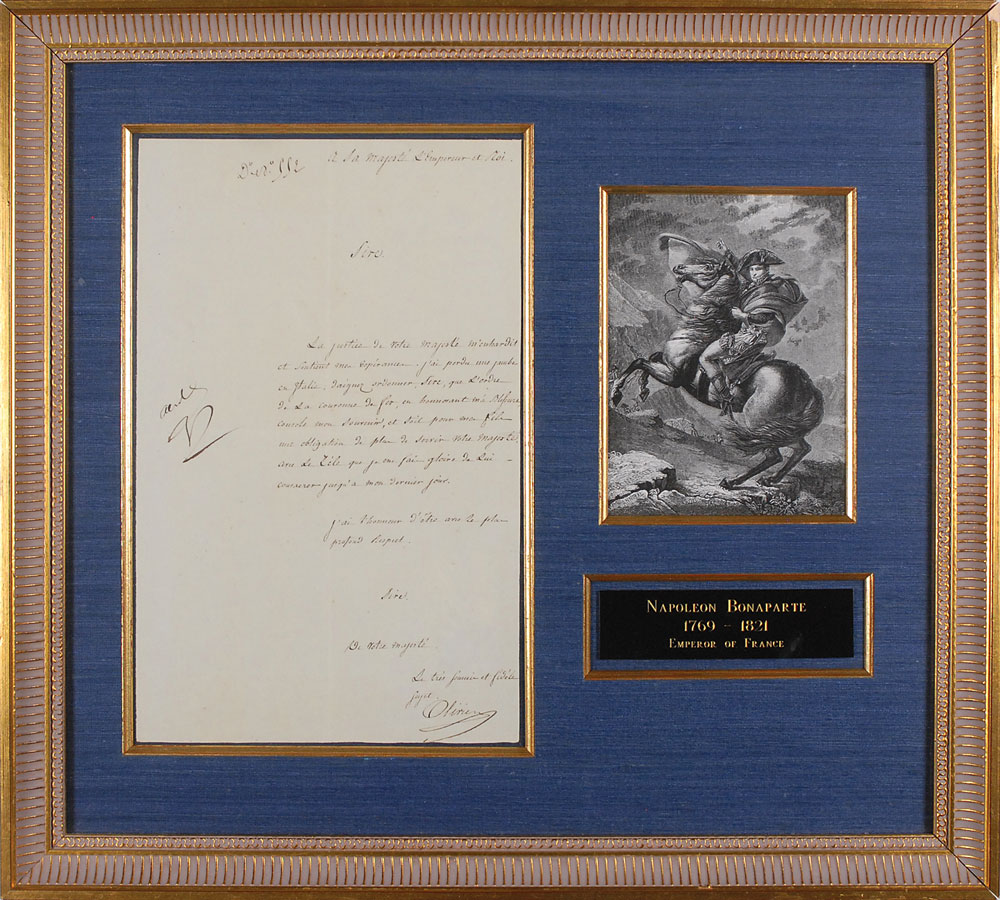 A Sa Majesté L'Empereur et Roi.
Sire.
La justice de Votre Majesté m'enhardit
et soutient mon espérance. j'ai perdu une jambe
en Italie, daignez ordonner, Sire, que L'ordre
de La couronne de fer, en honorant ma Blessure
console mon Souvenir, et soit pour mon fils
une obligation de plus de servir Votre Majesté
avec Le Zèle que je me fais gloire de Lui
consacrer jusqu'à mon dernier jour.
j'ai l'honneur d'être avec le plus
profond Respect.
Sire.
De Votre Majesté.
Le très soumis et fidèle
sujet
NAPOLEON BONAPARTE
1769 - 1821
EMPEROR OF FRANCE